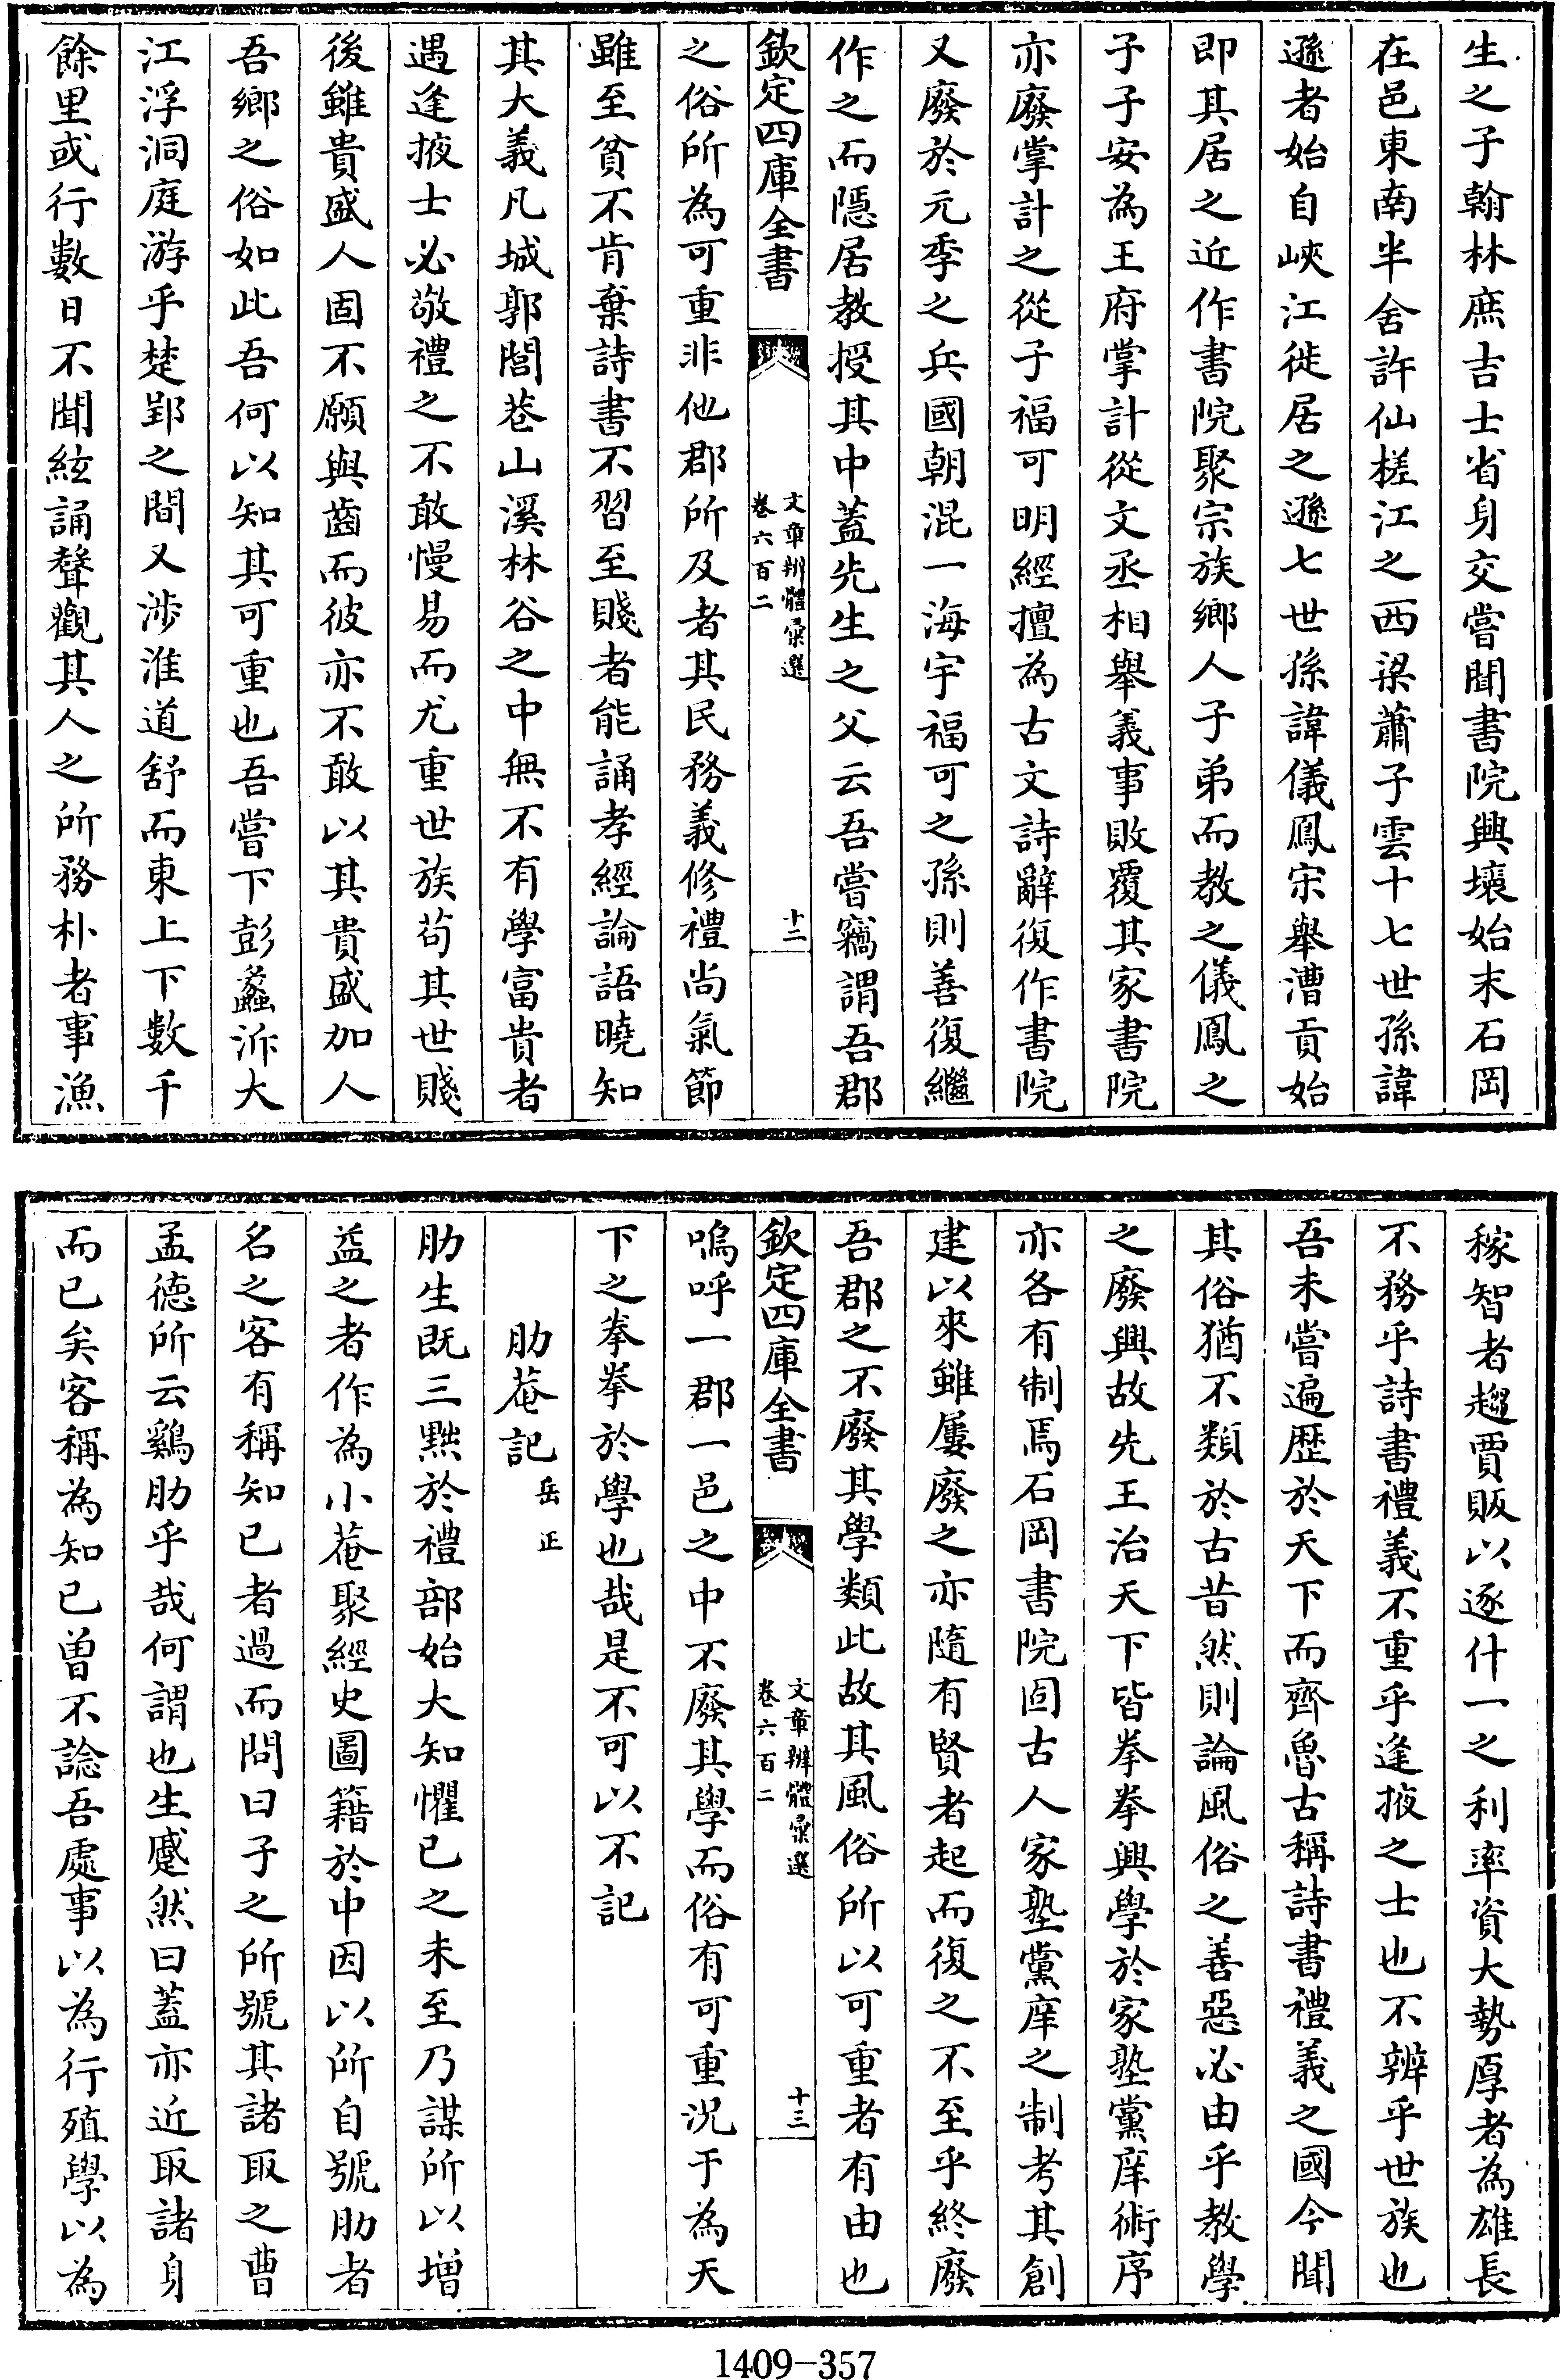 生之子翰林庶吉士省身交嘗聞書院興壞始末石岡
在邑東南半舍許仙槎江之西梁蕭子雲十七世孫諱
遜者始自峽江徙居之遜七世孫諱儀鳳宋舉漕貢始
即其居之近作書院聚宗族鄉人子弟而教之儀鳳之
子子安為王府掌計從文丞相舉義事敗覆其家書院
亦廢掌計之從子福可明經擅為古文詩辭復作書院
又廢於元季之兵國朝混一海宇福可之孫則善復繼
作之而隱居教授其中蓋先生之父云吾嘗竊謂吾郡
欽定四庫全書
文章辨體彙選
卷六百二
十二
之俗所為可重非他郡所及者其民務義修禮尚氣節
雖至貧不肯棄詩書不習至賤者能誦孝經論語曉知
其大義凡城郭閭巷山溪林谷之中無不有學富貴者
遇逢掖士必敬禮之不敢慢易而尤重世族茍其世賤
後雖貴盛人固不願與齒而彼亦不敢以其貴盛加人
吾鄉之俗如此吾何以知其可重也吾嘗下彭蠡泝大
江浮洞庭游乎楚郢之間又涉淮道舒而東上下數千
餘里或行數日不聞絃誦聲觀其人之所務朴者事漁
稼智者趨賈販以逐什一之利率資大勢厚者為雄長
不務乎詩書禮義不重乎逢掖之士也不辨乎世族也
吾未嘗遍歴於天下而齊魯古稱詩書禮義之國今聞
其俗猶不類於古昔然則論風俗之善惡必由乎教學
之廢興故先王治天下皆拳拳興學於家塾黨庠術序
亦各有制焉石岡書院固古人家塾黨庠之制考其創
建以來雖屢廢之亦隨有賢者起而復之不至乎終廢
吾郡之不廢其學類此故其風俗所以可重者有由也
欽定四庫全書
文章辨體彙選
卷六百二
十三
嗚呼一郡一邑之中不廢其學而俗有可重況于為天
下之拳拳於學也哉是不可以不記
肋菴記岳正
肋生既三黜於禮部始大知懼已之未至乃謀所以增
益之者作為小菴聚經史圖籍於中因以所自號肋者
名之客有稱知已者過而問曰子之所號其諸取之曹
孟德所云鷄肋乎哉何謂也生蹙然曰蓋亦近取諸身
而已矣客稱為知已曾不諗吾處事以為行殖學以為
1409-357